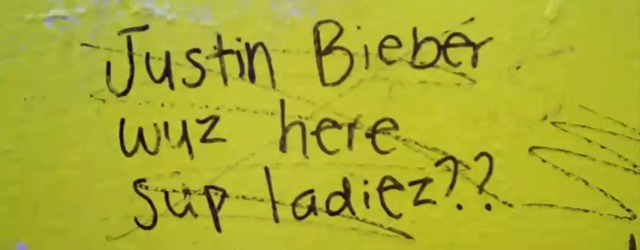 Justin Bieber
wuz here
sup ladiez??